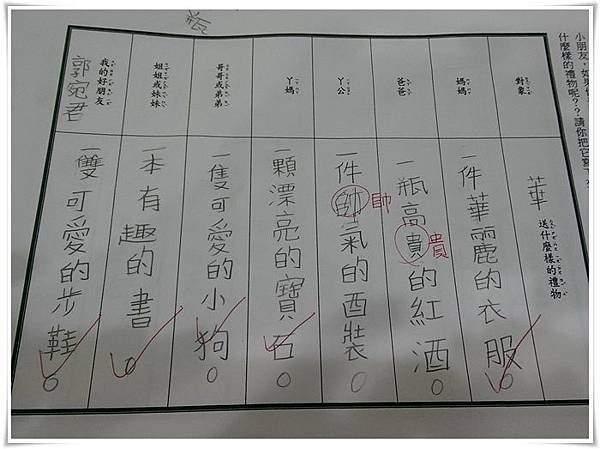 小朋友，如果你
什麼樣的禮物呢？？請你把它寫下
對象
華
送什麼樣的禮物
媽媽
一件華麗的衣服。
爸爸
一瓶高貴的紅酒。
貴
ㄚ公
一件帥氣的酉裝。
帥
ㄚ媽
一顆漂亮的寶石。
哥哥或弟弟
一隻可愛的小狗。
姐姐或妹妹
一本有趣的書。
我的好朋友
郭宛君
一雙可愛的步鞋。
瓶